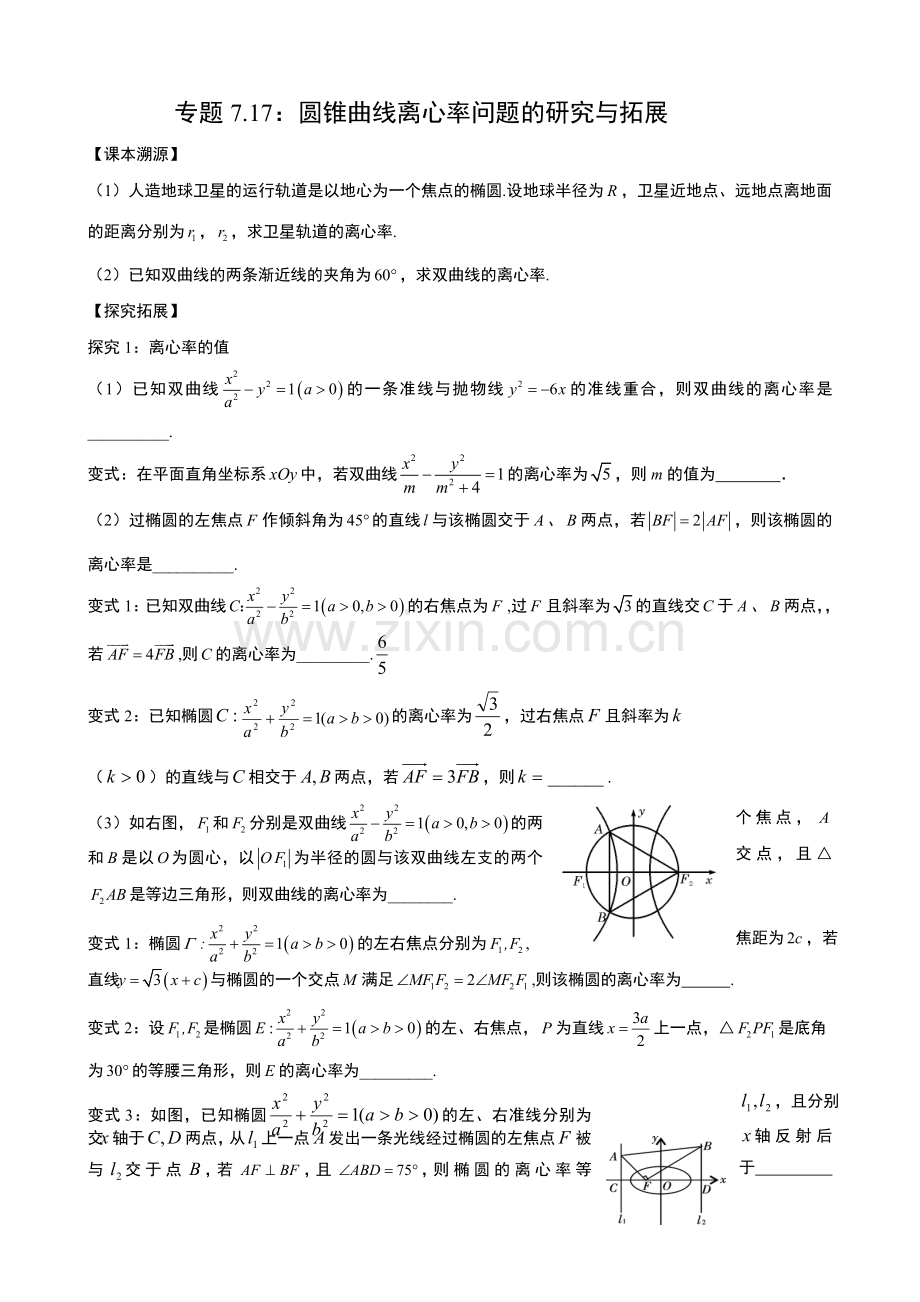 专题 7.17：圆锥曲线离心率问题的研究与拓展
【课本溯源】
（1）人造地球卫星的运行轨道是以地心为一个焦点的椭圆.设地球半径为 R，卫星近地点、远地点离地面
的距离分别为 r₁，r₂，求卫星轨道的离心率.
（2）已知双曲线的两条渐近线的夹角为 60°，求双曲线的离心率.
【探究拓展】
探究 1：离心率的值
（1）已知双曲线 x²/a² − y² = 1(a > 0) 的一条准线与抛物线 y² = −6x 的准线重合，则双曲线的离心率是
__________.
变式：在平面直角坐标系 xOy 中，若双曲线 x²/m − y²/(m² + 4) = 1 的离心率为 √5，则 m 的值为________．
（2）过椭圆的左焦点 F 作倾斜角为 45° 的直线 l 与该椭圆交于 A、B 两点，若 |BF| = 2|AF|，则该椭圆的
离心率是__________.
变式 1：已知双曲线 C: x²/a² − y²/b² = 1(a > 0, b > 0) 的右焦点为 F ,过 F 且斜率为 √3 的直线交 C 于 A、B 两点，，
若 AF = 4FB ,则 C 的离心率为_________. 6/5
www.zixin.com.cn
变式 2：已知椭圆 C : x²/a² + y²/b² = 1(a > b > 0) 的离心率为 √3/2，过右焦点 F 且斜率为 k
（k > 0）的直线与 C 相交于 A, B 两点，若 AF = 3FB，则 k = _______ .
（3）如右图，F₁ 和 F₂ 分别是双曲线 x²/a² − y²/b² = 1(a > 0, b > 0) 的两 个焦点，A
和 B 是以 O 为圆心，以 |OF₁| 为半径的圆与该双曲线左支的两个 交点，且△
F₂AB 是等边三角形，则双曲线的离心率为________.
y
A
F₁ O F₂ x
B
变式 1：椭圆 Γ : x²/a² + y²/b² = 1(a > b > 0) 的左右焦点分别为 F₁,F₂ , 焦距为 2c，若
直线 y = √3(x + c) 与椭圆的一个交点 M 满足 ∠MF₁F₂ = 2∠MF₂F₁ ,则该椭圆的离心率为______.
变式 2：设 F₁,F₂ 是椭圆 E : x²/a² + y²/b² = 1(a > b > 0) 的左、右焦点，P 为直线 x = 3a/2 上一点，△ F₂PF₁ 是底角
为 30° 的等腰三角形，则 E 的离心率为_________.
变式 3：如图，已知椭圆 x²/a² + y²/b² = 1(a > b > 0) 的左、右准线分别为 l₁, l₂，且分别
交 x 轴于 C, D 两点，从 l₁ 上一点 A 发出一条光线经过椭圆的左焦点 F 被 x 轴反射后
与 l₂ 交于点 B，若 AF ⊥ BF，且 ∠ABD = 75°，则椭圆的离心率等 于__________
y
A B
C F O D x
l₁ l₂